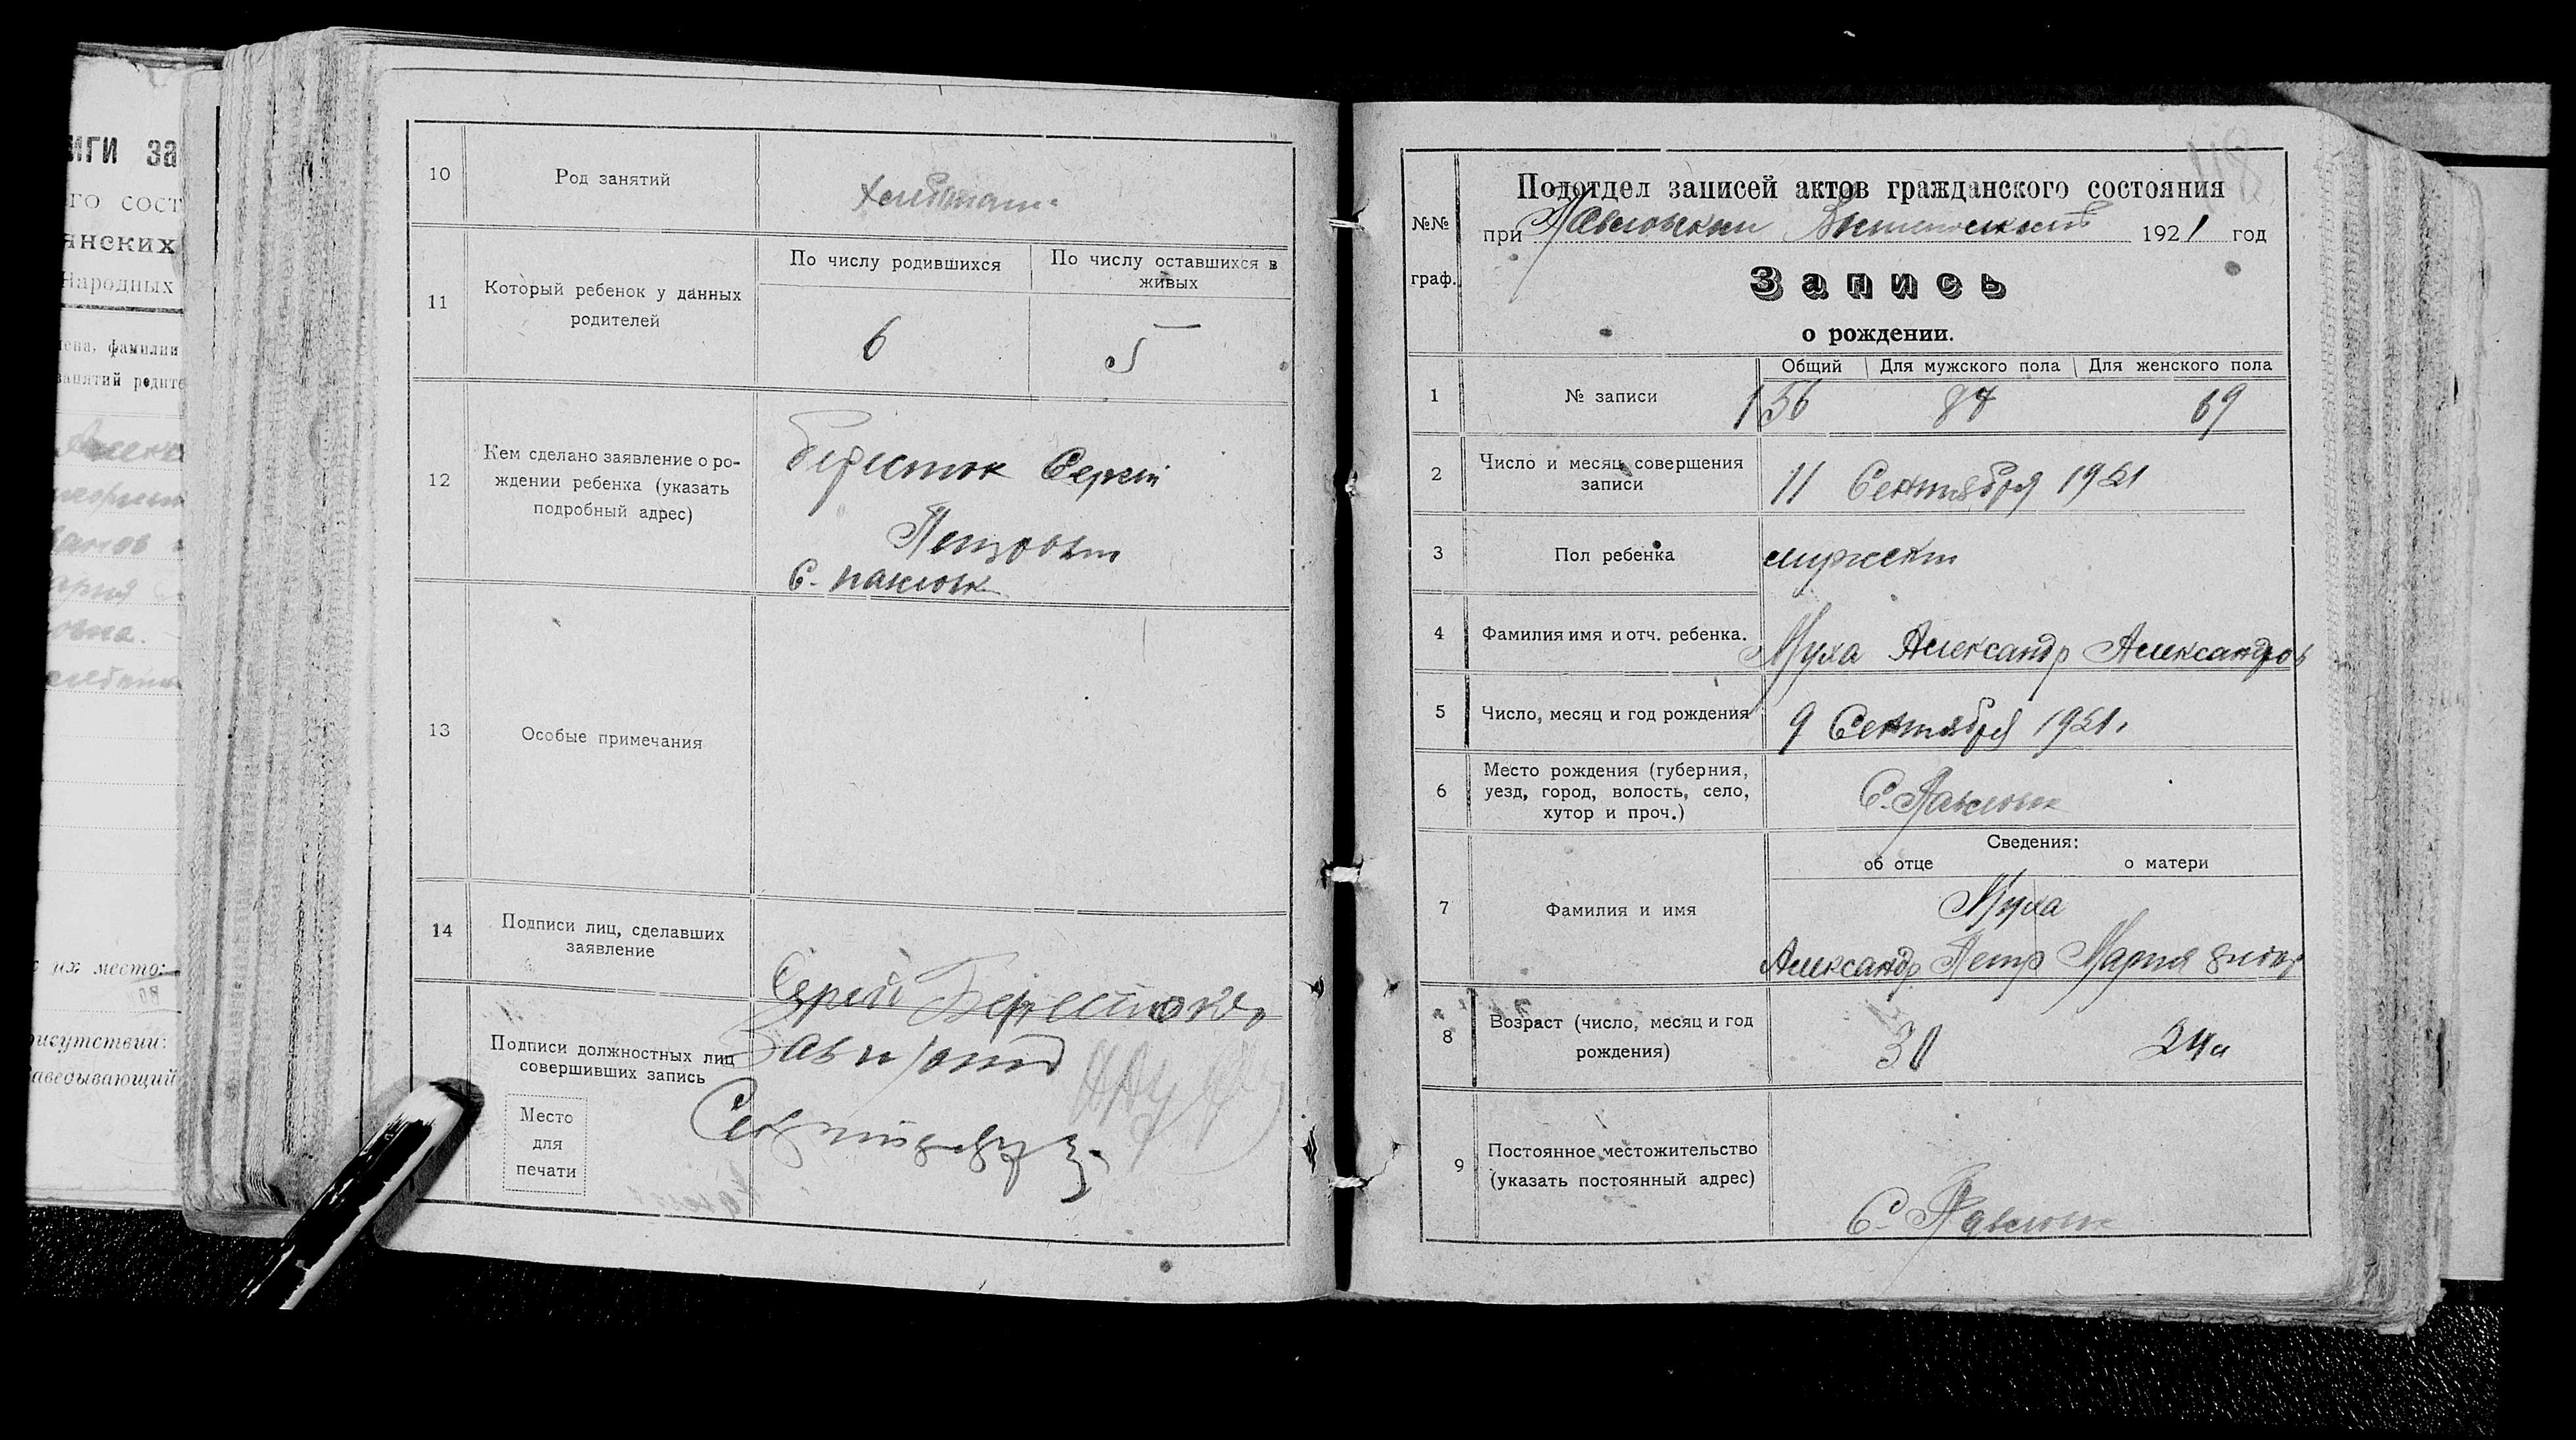 ИГИ ЗА
ГО СОСТ
ЯНСКИХ
Народных
мена, фамилии
занятий родите
их место:
рисутствии:
аведывающий
10
Род занятий
11
Который ребенок у данных
родителей
По числу родившихся
По числу оставшихся в
живых
6
5
12
Кем сделано заявление о ро-
ждении ребенка (указать
подробный адрес)
Бересток Сергей
Петрович
С. Павловк
13
Особые примечания
14
Подписи лиц, сделавших
заявление
Сергей
Подписи должностных лиц
совершивших запись
Место
для
печати
№№
граф.
Подотдел записей актов гражданского состояния
при Павловском 1921 год
Запись
о рождении.
1
№ записи
Общий
Для мужского пола
Для женского пола
156
87
69
2
Число и месяц совершения
записи
11 Сентября 1921
3
Пол ребенка
мужской
4
Фамилия имя и отч. ребенка.
Муха Александр Александров
5
Число, месяц и год рождения
9 Сентября 1921.
6
Место рождения (губерния,
уезд, город, волость, село,
хутор и проч.)
С. Павловк
Сведения:
об отце
о матери
7
Фамилия и имя
Муха
Александр Петр Мария
8
Возраст (число, месяц и год
рождения)
30
24
9
Постоянное местожительство
(указать постоянный адрес)
С. Павловк